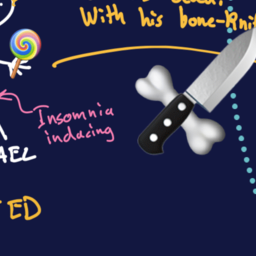 With his bone-Kni
Insomnia
inducing
AEL
TED